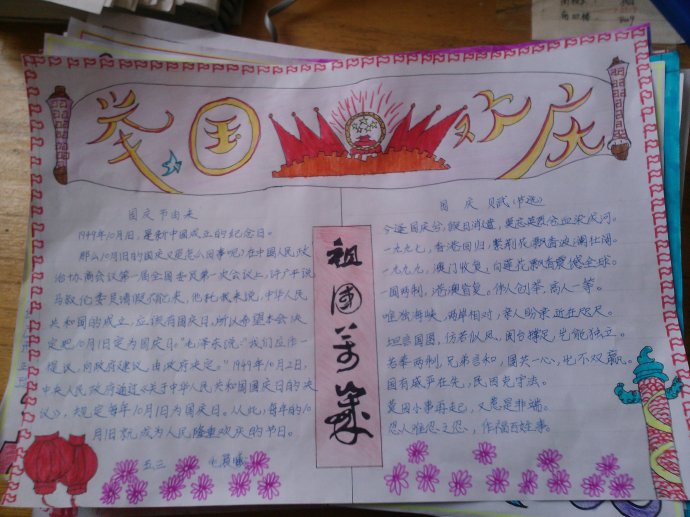 举国欢庆
国庆节由来
1949年10月1日,是新中国成立的纪念日。
那么10月1日的国庆又是怎么回事呢?在中国人民政
治协商会议第一届全国委员第一次会议上,许广平说
马叙伦委员请假不能来,他托我来说,中华人民
共和国的成立,应该有国庆日,所以希望本会决
定把10月1日定为国庆日。"毛泽东说:"我们应作一
提议,向政府建议,由政府决定。"1949年10月2日,
中央人民政府通过《关于中华人民共和国国庆日的决
议》,规定每年10月1日为国庆日。从此,每年的10
月1日就成为人民隆重欢庆的节日。
五三
祖國万岁
国庆 赋(节选)
今逢国庆
一九九七,香港回归,紫荆花飘香
一九九九,澳门收复,白莲花飘香震感全球。
一国两制,港澳皆复。伟人创举,高人一等。
唯独海峡,两岸相对,亲人盼亲近在咫尺。
若奉两制,兄弟言和,国共一心,岂不双赢。
国有威严在先,民因克守法。
莫因小事再起,又惹是非端。
忍人难忍之忍,作福百姓事。